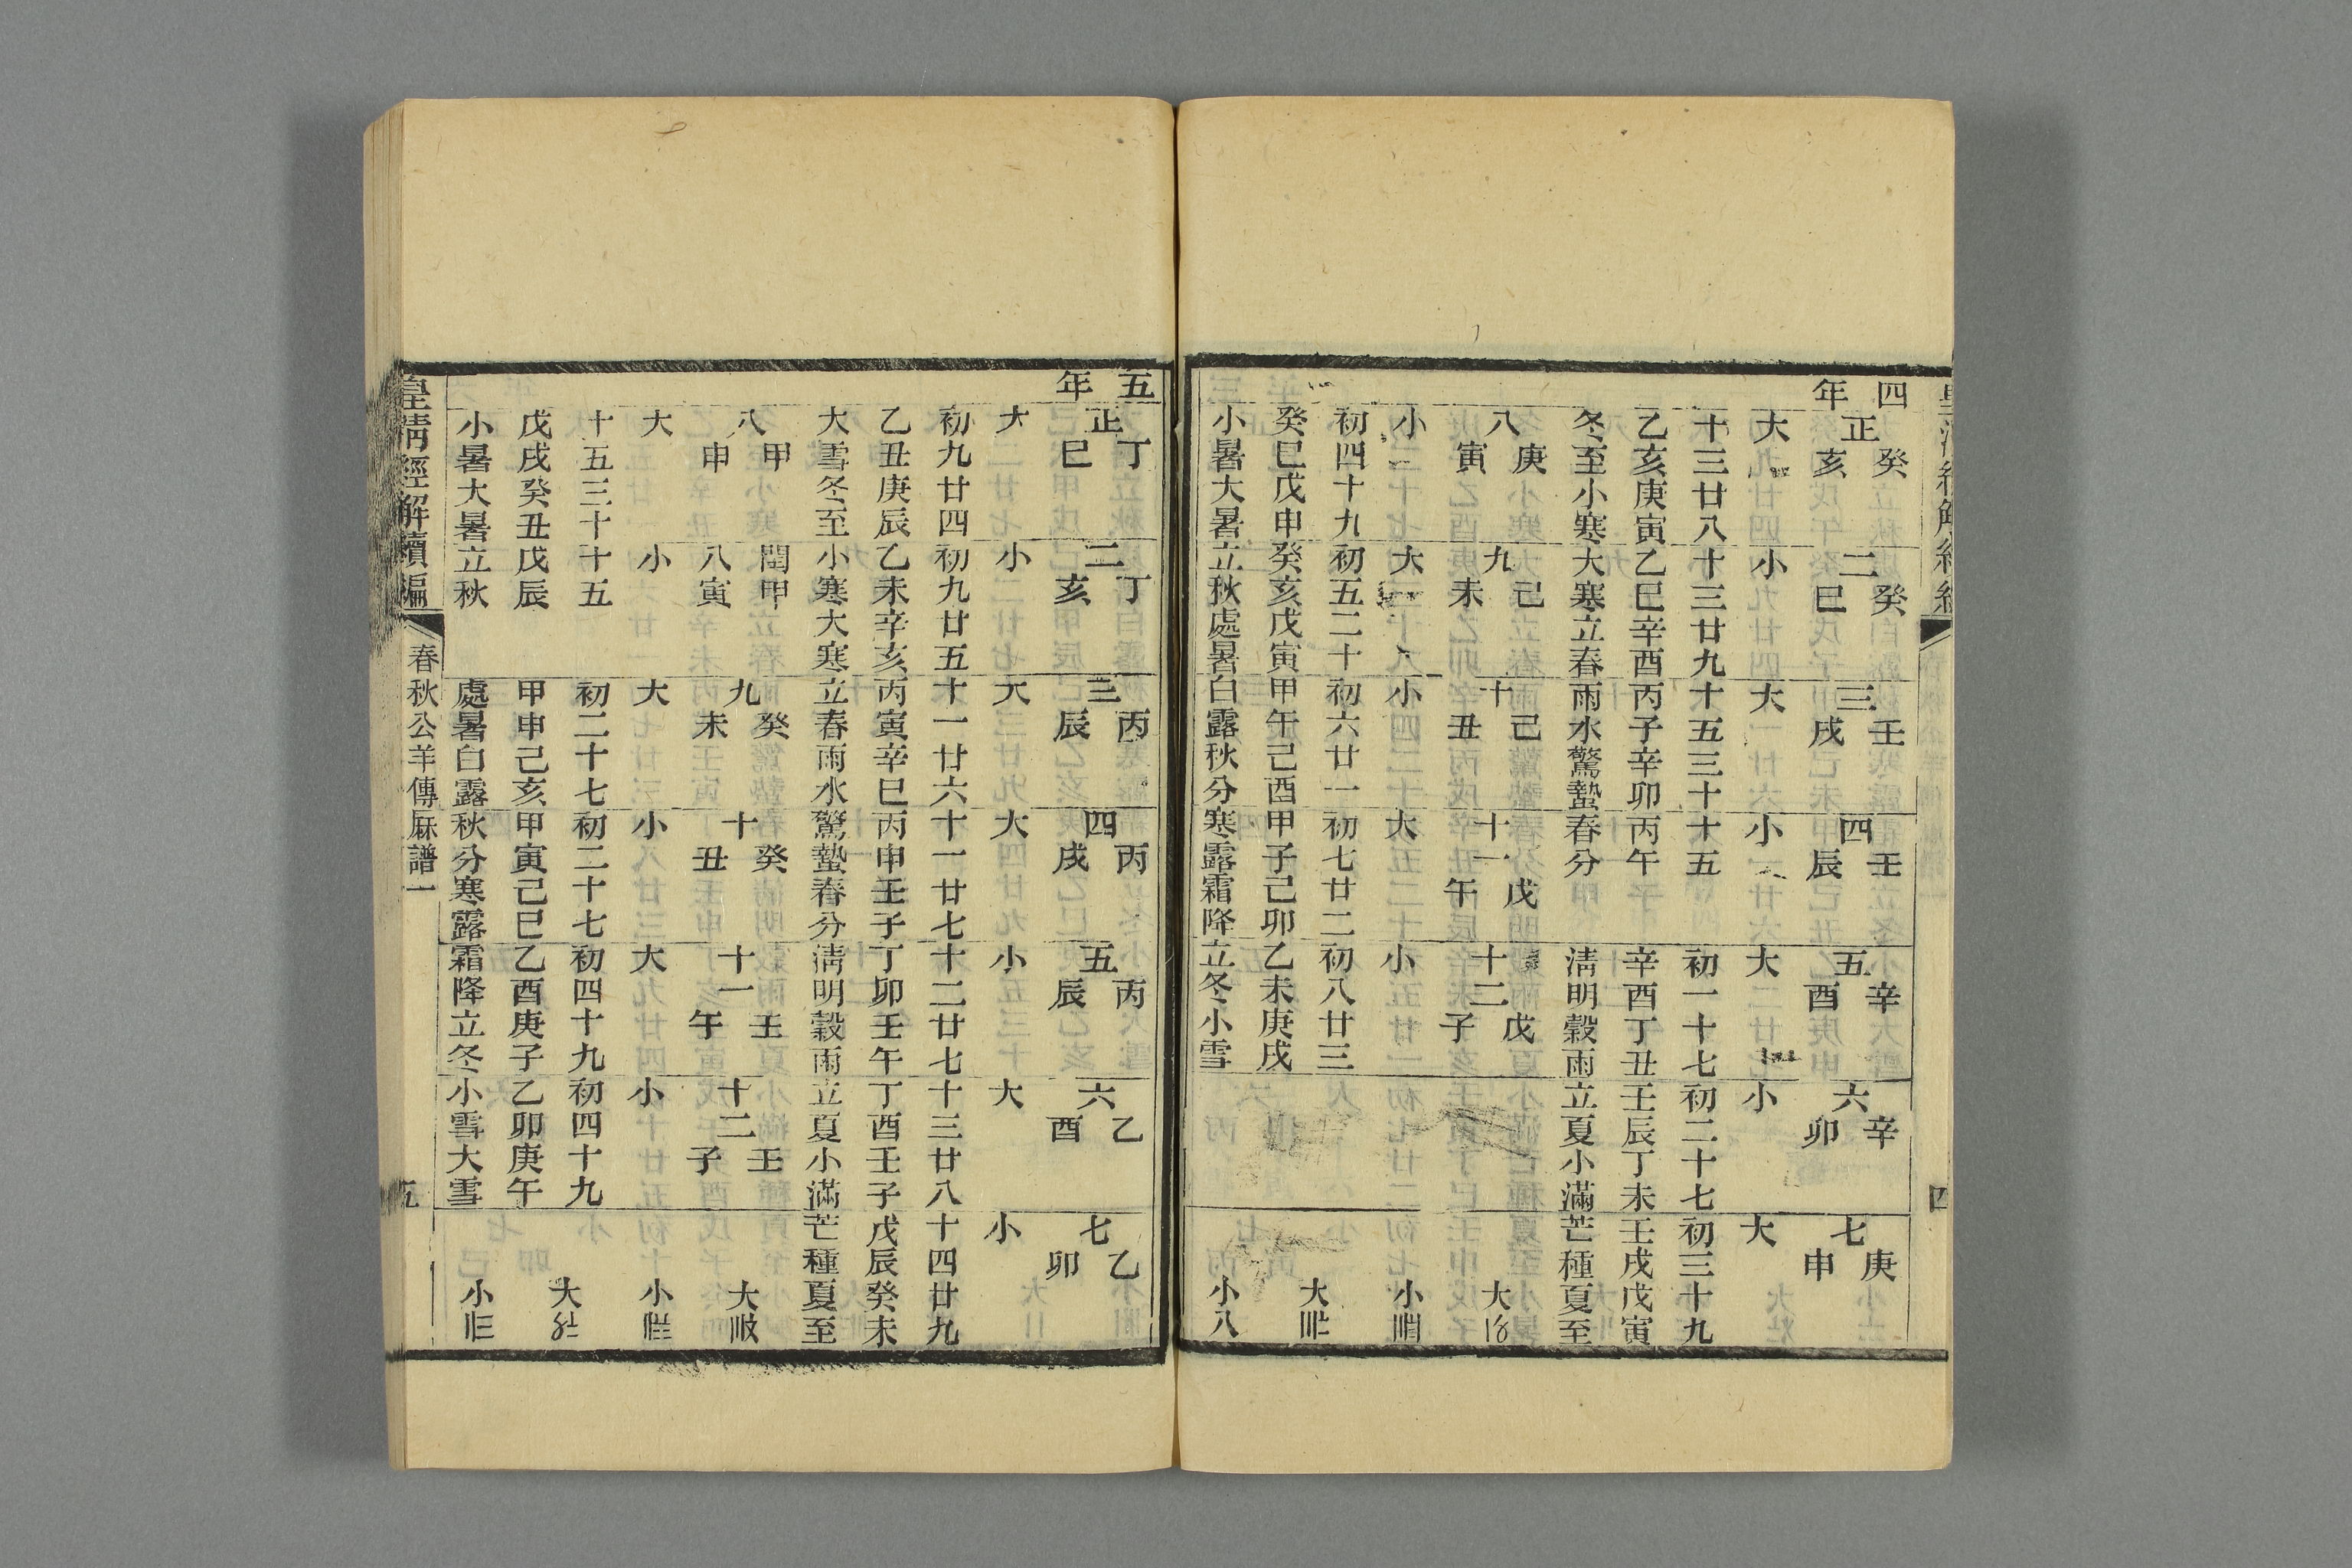 四年
正 癸亥
二 癸巳
三 壬戌
四 壬辰
五 辛酉
六 辛卯
七 庚申
大 小 大 小 大 小 大
十三廿八 十三廿九 十五三十 十五 初一十七 初二十七 初三十九
乙亥庚寅 乙巳辛酉 丙子辛卯 丙午 辛酉丁丑 壬辰丁未 壬戌戊寅
冬至小寒 大寒立春 雨水驚蟄 春分 淸明穀雨 立夏小滿 芒種夏至
八 庚寅
九 己未
十 己丑
十一 戊午
十二 戊子
大
小 大 小 大 小 小
初四十九 初五二十 初六廿一 初七廿二 初八廿三 大
癸巳戊申 癸亥戊寅 甲午己酉 甲子己卯 乙未庚戌
小暑大暑 立秋處暑 白露秋分 寒露霜降 立冬小雪 小
四
五年
正 丁巳
二 丁亥
三 丙辰
四 丙戌
五 丙辰
六 乙酉
七 乙卯
大 小 大 大 小 大 小
初九廿四 初九廿五 十一廿六 十一廿七 十二廿七 十三廿八 十四廿九
乙丑庚辰 乙未辛亥 丙寅辛巳 丙申壬子 丁卯壬午 丁酉壬子 戊辰癸未
大雪冬至 小寒大寒 立春雨水 驚蟄春分 淸明穀雨 立夏小滿 芒種夏至
八 甲申
閏八 甲寅
九 癸未
十 癸丑
十一 壬午
十二 壬子
大
大 小 大 小 大 小 小
十五三十 十五 初二十七 初二十七 初四十九 初四十九 大
戊戌癸丑 戊辰 甲申己亥 甲寅己巳 乙酉庚子 乙卯庚午
小暑大暑 立秋 處暑白露 秋分寒露 霜降立冬 小雪大雪 小
皇淸經解續編 春秋公羊傳厤譜一 五